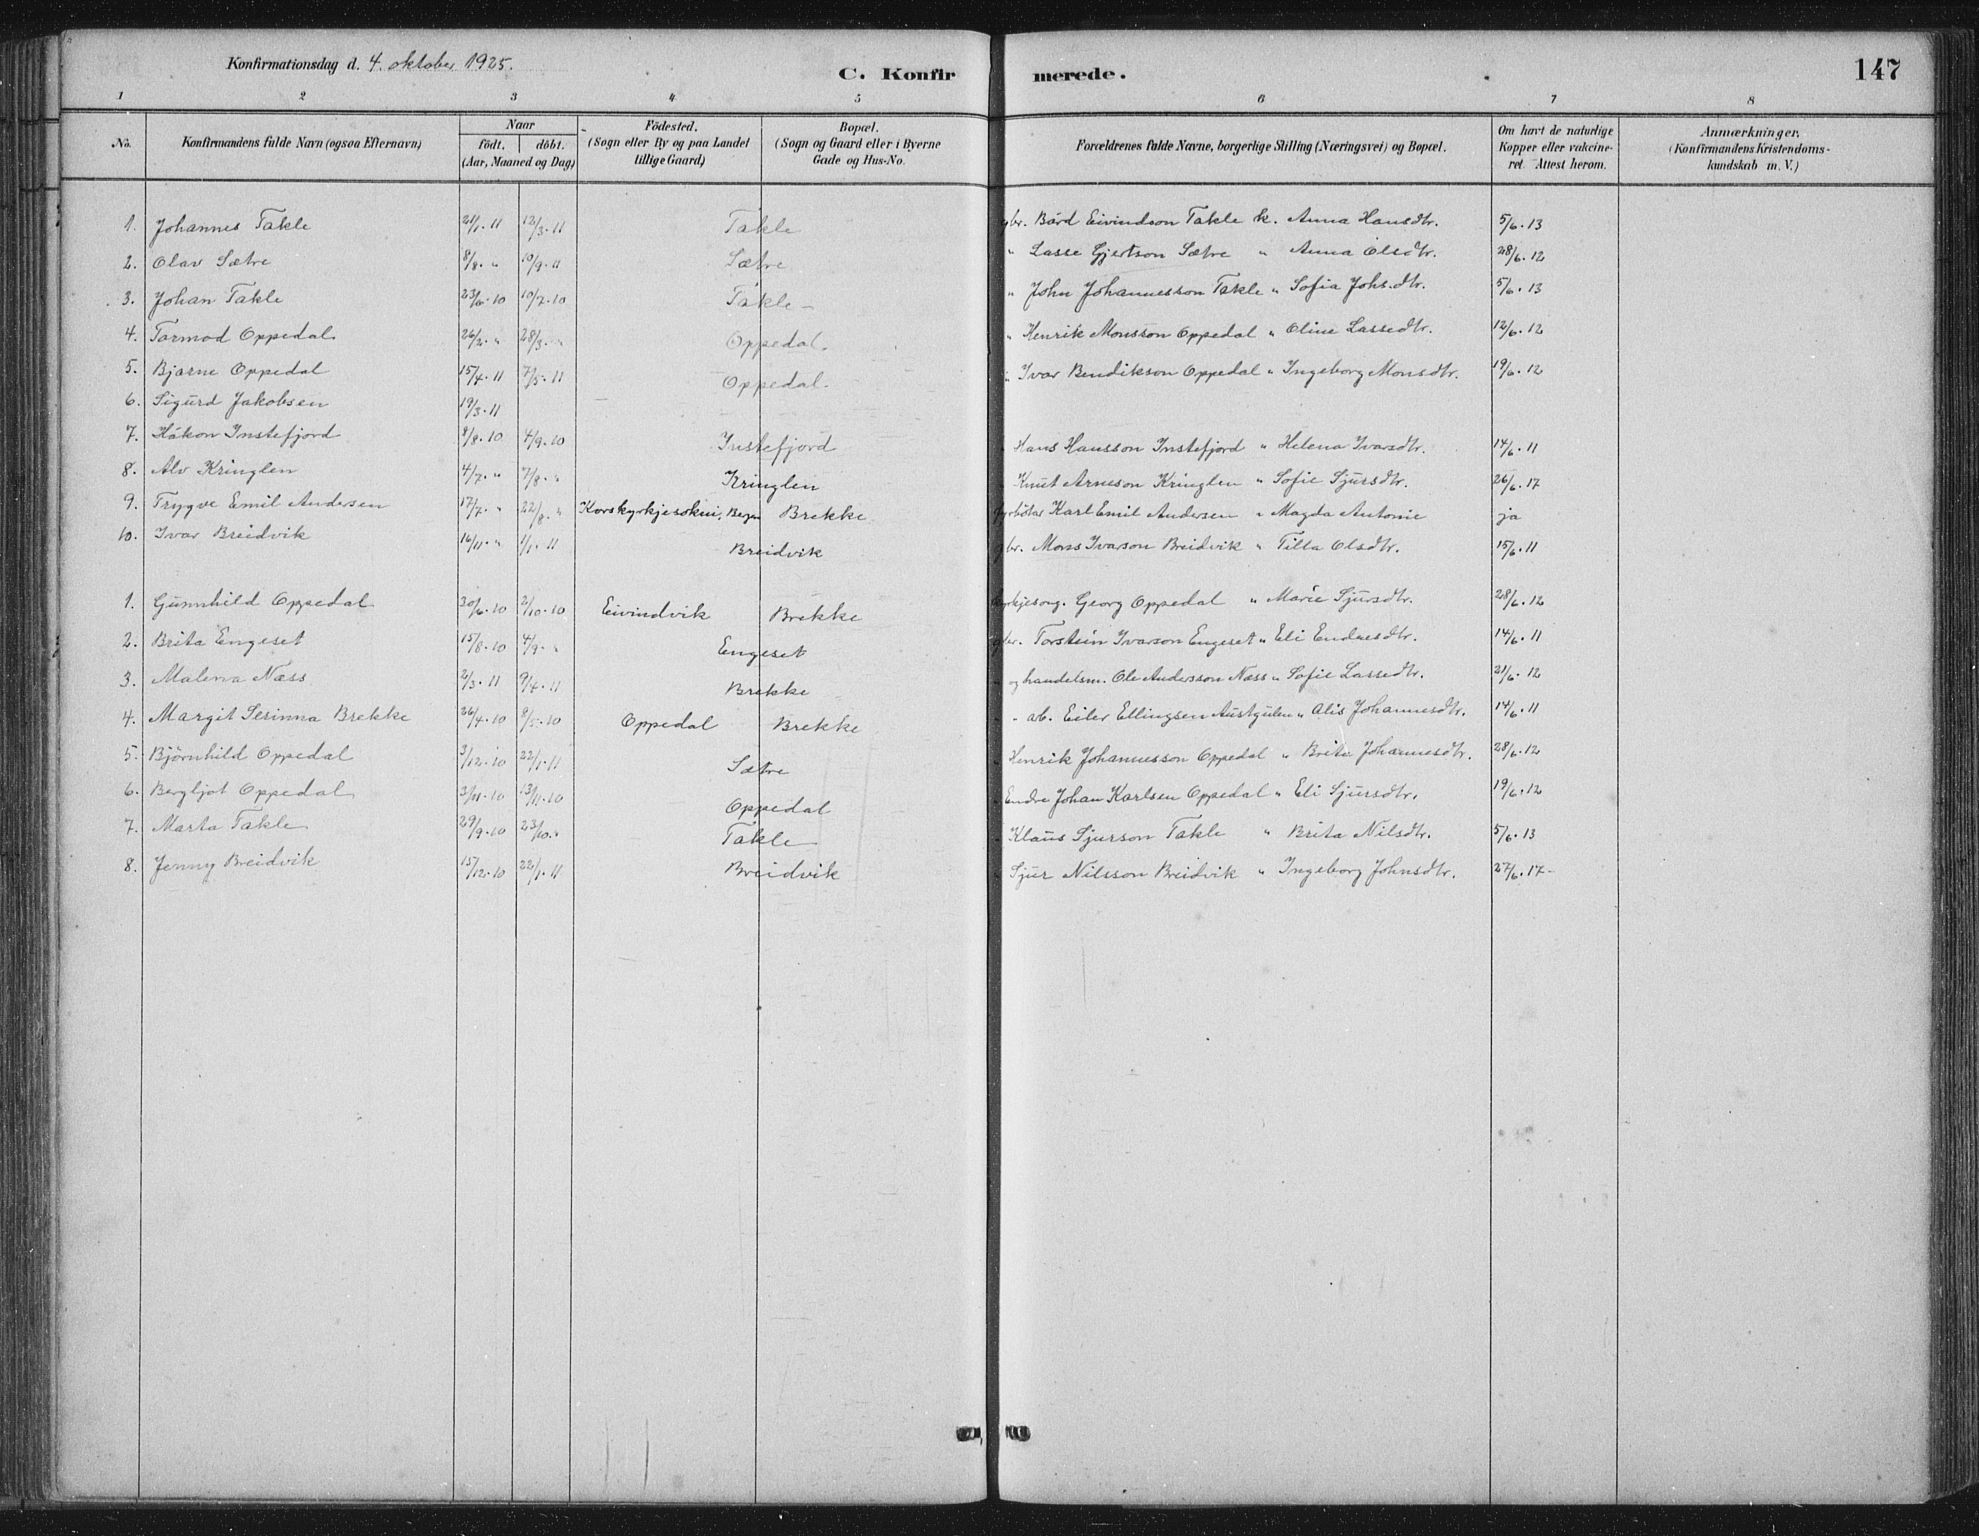 Konfirmationsdag d. 4. oktober 1925.
C. Konfirmerede.
147
1 2 3 4 5 6 7 8
No. Konfirmandens fulde Navn (ogsaa Efternavn) Naar födt. döbt. (Aar, Maaned og Dag) Födested. (Sogn eller By og paa Landet tillige Gaard) Bopæl. (Sogn og Gaard eller i Byerne Gade og Hus-No. Forældrenes fulde Navne, borgerlige Stilling (Næringsvei) og Bopæl. Om havt de naturlige Kopper eller vakcineret. Attest herom. Anmærkninger. (Konfirmandens Kristendomskundskab m. V.)
1. Johannes Takle 21/1.11 12/3.11 Takle gbr. Bård Eivindson Takle k. Anna Hansdtr. 5/6.13
2. Olav Sætre 8/8. " 10/9.11 Sætre " Lasse Gjertson Sætre " Anna Olsdtr. 28/6.12
3. Johan Takle 23/6.10 10/7.10 Takle " John Johannesson Takle " Sofia Johs.dtr. 5/6.13
4. Tormod Oppedal 26/2. " 28/3. " Oppedal. " Henrik Monsson Oppedal " Oline Lassedtr. 12/6.12
5. Bjarne Oppedal 15/4.11 7/5.11 Oppedal. " Ivar Bendikson Oppedal " Ingeborg Monsdtr. 19/6.12
6. Sigurd Jakobsen 19/3.11
7. Håkon Instefjord 8/8.10 4/9.10 Instefjord " Hans Hansson Instefjord " Helena Ivarsdtr. 14/6.11
8. Alv Kringlen 4/7. " 7/8. " Kringlen " Knut Arneson Kringlen " Sofie Sjursdtr. 26/6.17
9. Trygve Emil Andersen 17/7. " 22/8. " Korskyrkjesokni, Bergen Brekke fyrbötar Karl Emil Andersen " Magda Antonie ja
10. Ivar Breidvik 16/11. " 1/1.11 Breidvik gbr. Mons Ivarson Breidvik " Tilla Olsdtr. 15/6.11
1. Gunnhild Oppedal 30/6.10 2/10.10 Eivindvik Brekke kyrkjesong. Georg Oppedal " Marie Sjursdtr. 28/6.12
2. Brita Engeset 15/8.10 4/9. " Engeset gbr. Torstein Ivarson Engeset " Eli Endresdtr. 14/6.11
3. Malena Næss 2/3.11 9/4.11 Brekke " og handelsm. Ole Andersson Næss " Sofie Lassedtr. 21/6.12
4. Margit Serinna Brekke 26/4.10 8/5.10 Oppedal Brekke " arb. Eiler Ellingsen Austgulen " Alis Johannesdtr. 14/6.11
5. Bjørnhild Oppedal 3/12.10 22/1.11 Sætre " Henrik Johannesson Oppedal " Brita Johannesdtr. 28/6.12
6. Bergljot Oppedal 3/11.10 13/11.10 Oppedal " Endre Johan Karlsen Oppedal " Eli Sjursdtr. 19/6.12
7. Marta Takle 29/9.10 23/10. " Takle " Klaus Sjurson Takle " Brita Nilsdtr. 5/6.13
8. Jenny Breidvik 15/12.10 22/1.11 Breidvik " Sjur Nilsson Breidvik " Ingeborg Johnsdtr. 27/6.17-